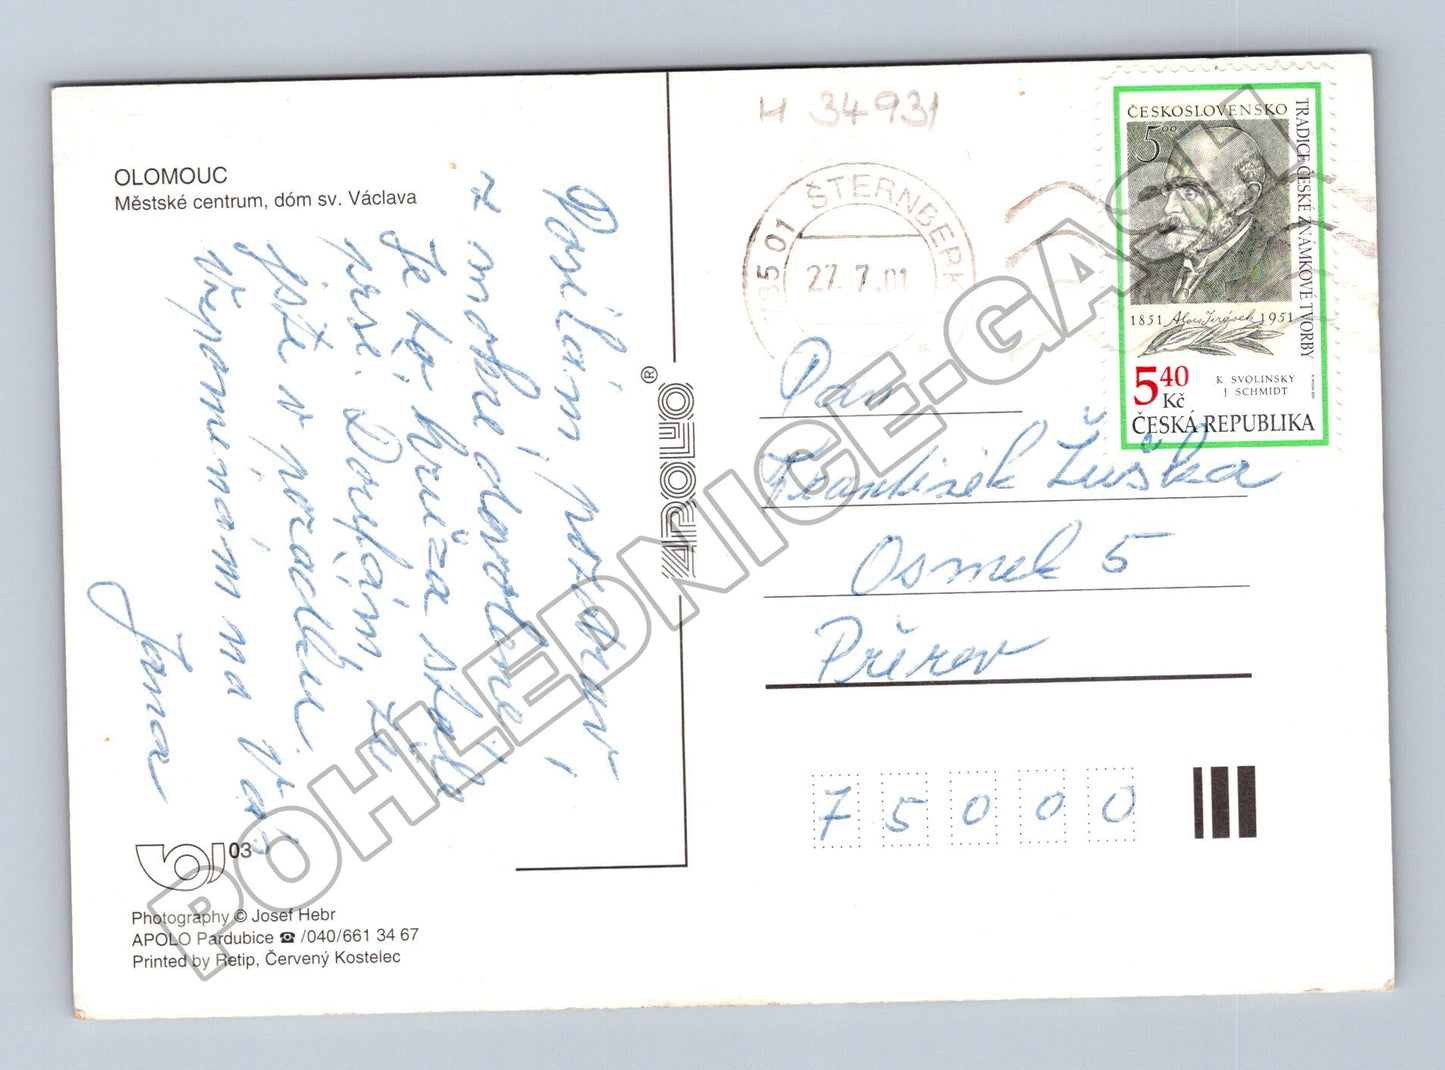 OLOMOUC
Městské centrum, dóm sv. Václava
Posílám pozdrav
z mokré dovolené,
Je to hrůza stále
prší. Doufám že
jste v pořádku.
Vzpomínám na Vás
Jana
03
Photography © Josef Hebr
APOLO Pardubice ☎ /040/661 34 67
Printed by Retip, Červený Kostelec
APOLO ®
H 34931
785 01 ŠTERNBERK
27. 7. 01
ČESKOSLOVENSKO
5 00
TRADICE ČESKÉ ZNÁMKOVÉ TVORBY
1851 Alois Jirásek 1951
5 40 Kč
K. SVOLINSKÝ
J. SCHMIDT
ČESKÁ REPUBLIKA
Pan
František Žuška
Osmek 5
Přerov
75000
POHLEDNICE-GASH